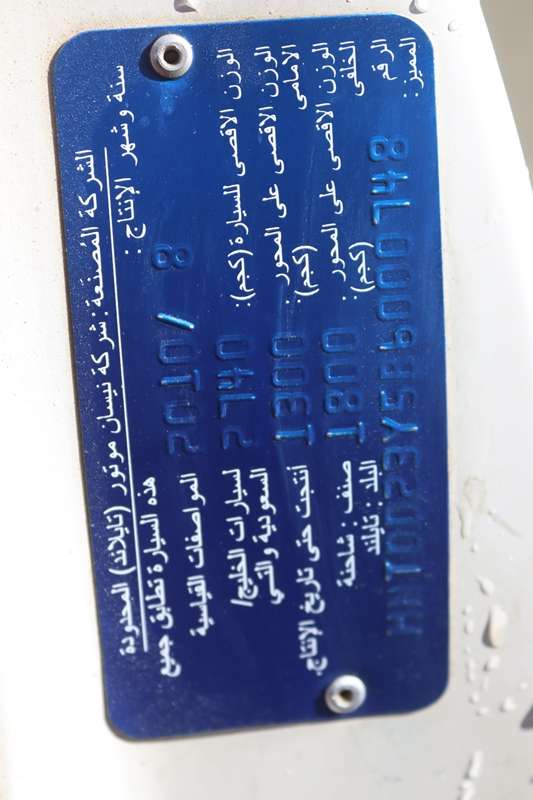 الشركة المُصنعة : شركة نيسان موتور (تايلاند) المحدودة
سنة وشهر الإنتاج :
2010/ 8
الوزن الاقصى للسيارة (كجم):
2740
الوزن الاقصى على المحور
الامامى (كجم):
1300
الوزن الاقصى على المحور
الخلفى (كجم):
1800
الرقم
المميز:
هذه السيارة تطابق جميع
المواصفات القياسية
لسيارات الخليج/
السعودية والتي
أنتجت حتى تاريخ الإنتاج.
صنف : شاحنة
البلد : تايلند